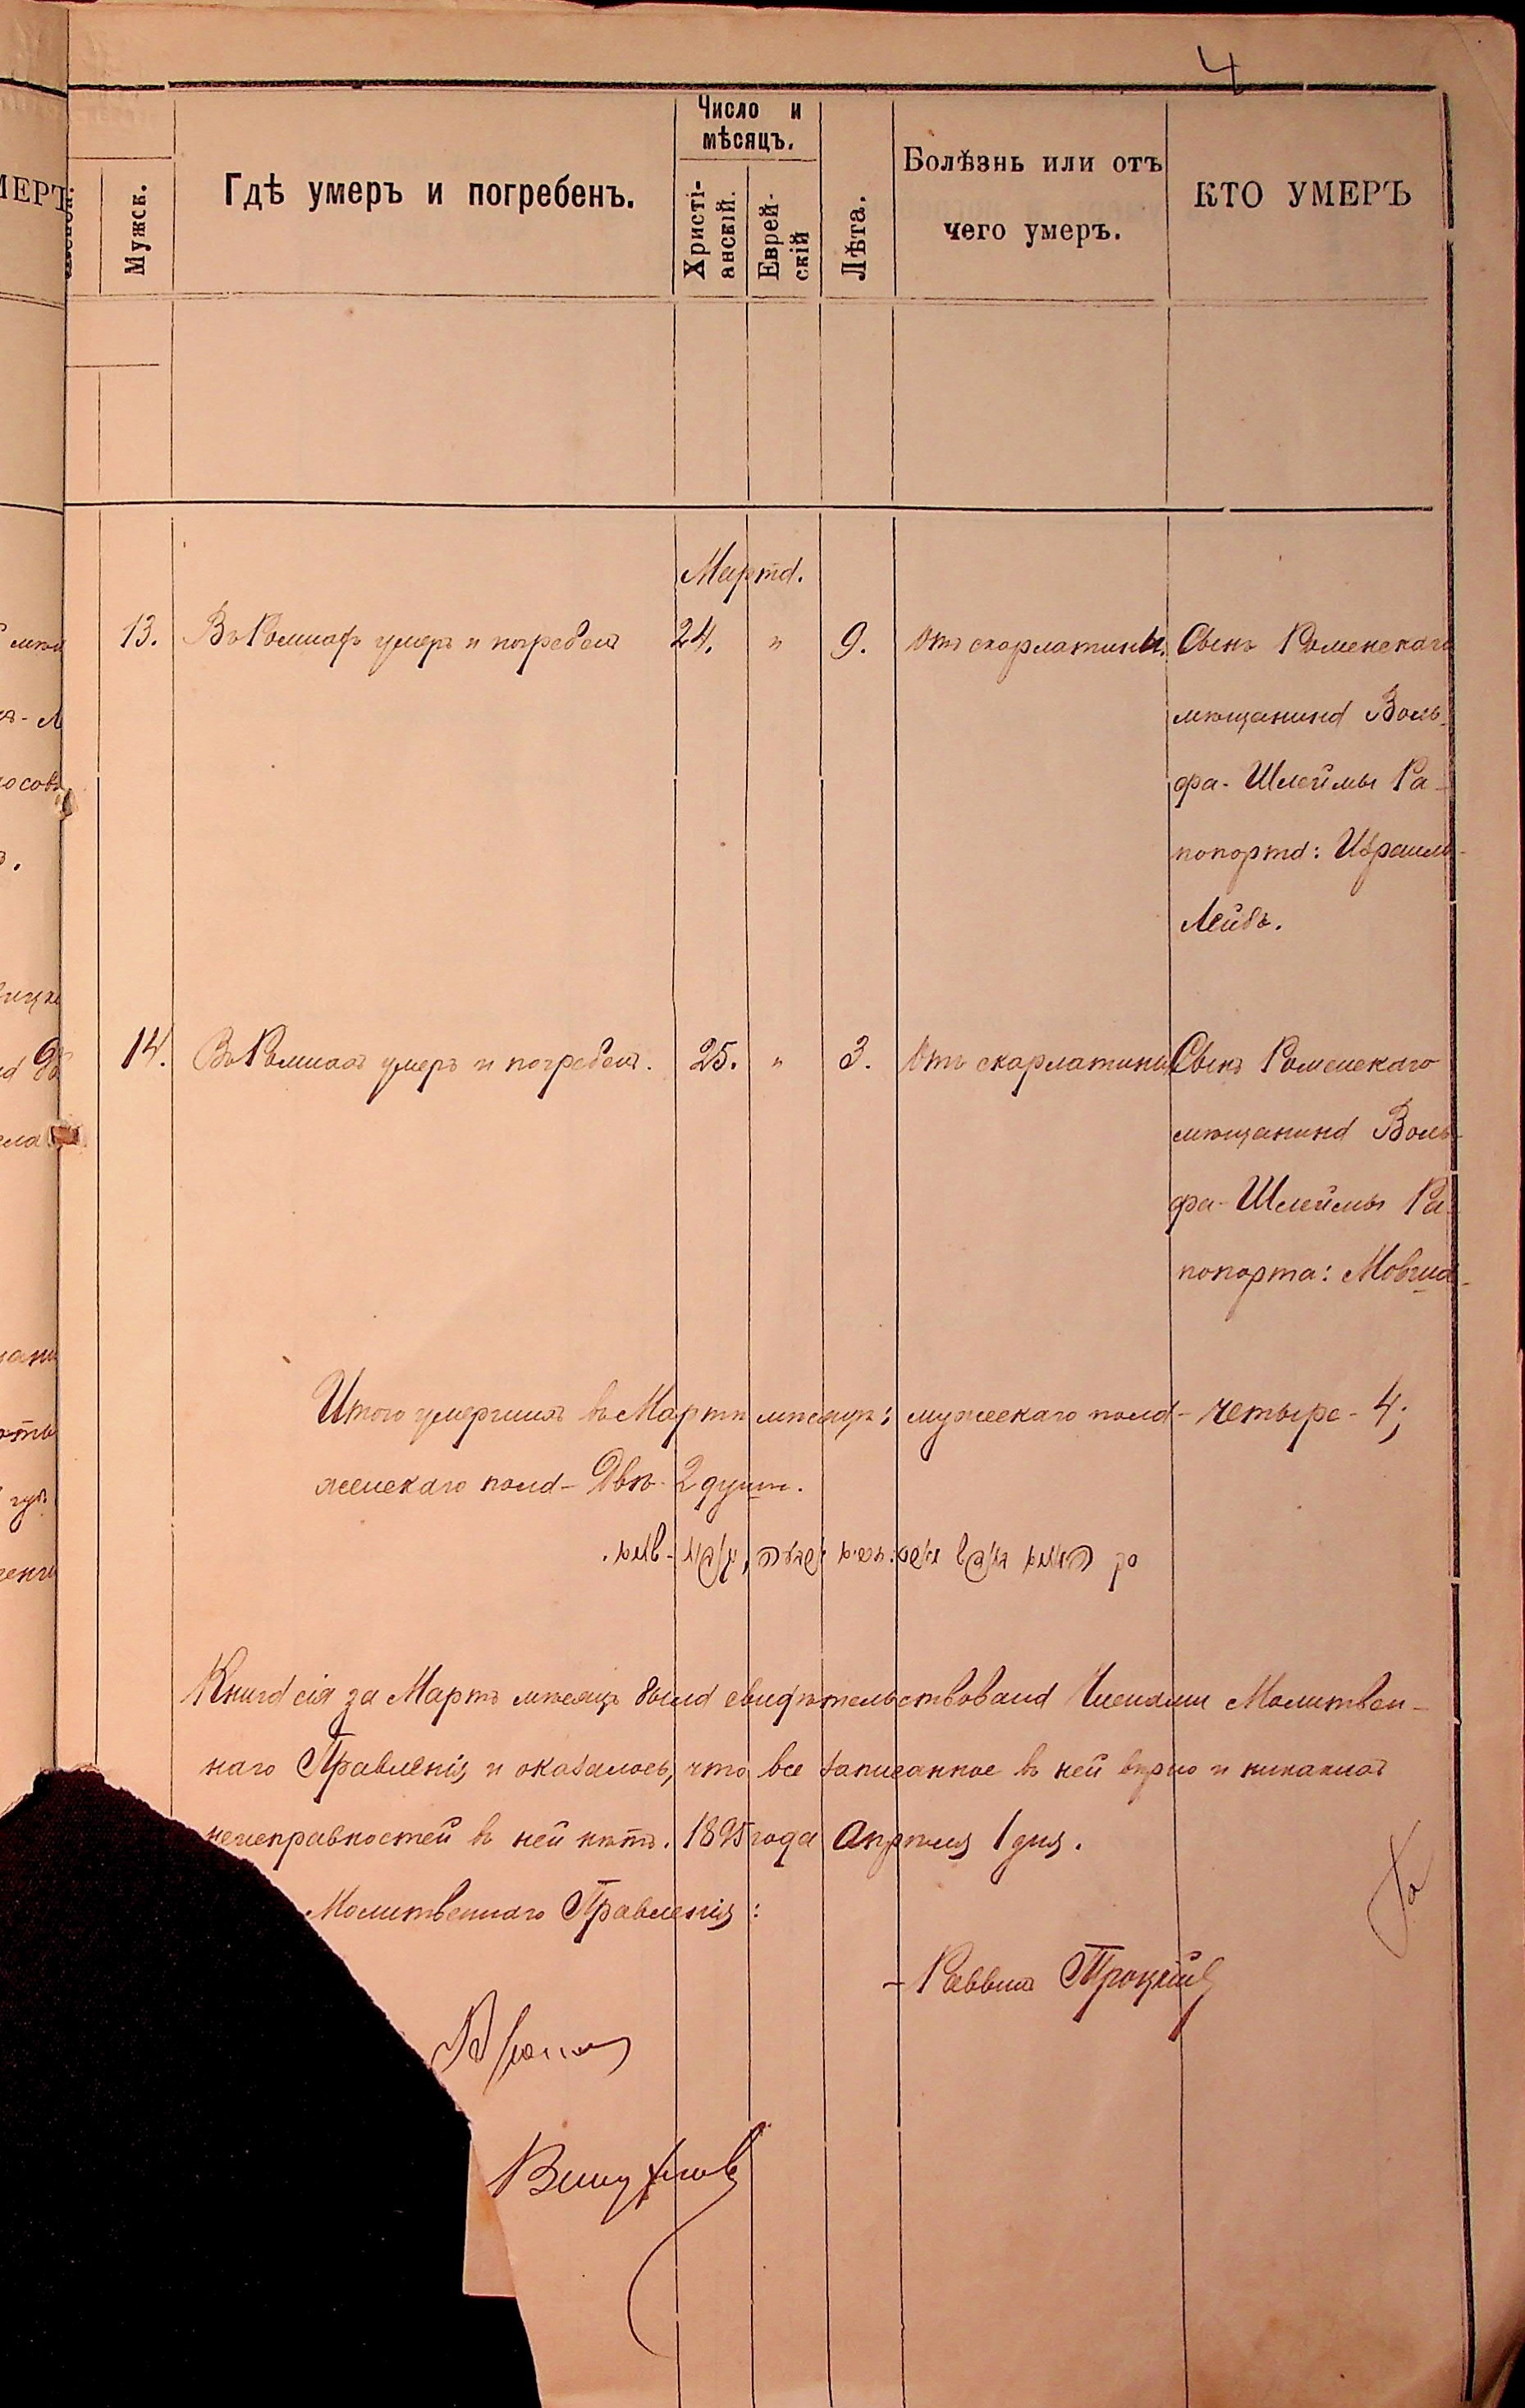 4
Число и мѣсяцъ.
Мужск.
Гдѣ умеръ и погребенъ.
Христі-
анскій.
Еврей-
скій
Лѣта.
Болѣзнь или отъ
чего умеръ.
КТО УМЕРЪ
Марта.
13. Въ Ромнахъ умеръ и погребенъ 24. " 9. Отъ скарлатины. Сынъ Роменскаго
мѣщанина Воль-
фа-Шлеймы Ра-
попорта: Израиль-
Лейбъ.
14. Въ Ромнахъ умеръ и погребенъ. 25. " 3. Отъ скарлатины Сынъ Роменскаго
мѣщанина Воль-
фа-Шлеймы Ра-
попорта: Мовша
Итого умершихъ въ Мартѣ мѣсяцѣ: мужескаго пола - четыре - 4;
женскаго пола - Двѣ - 2 души.
Книга сія за Мартъ мѣсяцъ была свидѣтельствована Членами Молитвен-
наго Правленія и оказалось, что все записанное въ ней вѣрно и никакихъ
неисправностей въ ней нѣтъ. 1895 года Апрѣля 1 дня.
Молитвеннаго Правленія:
Раввинъ Троцкій